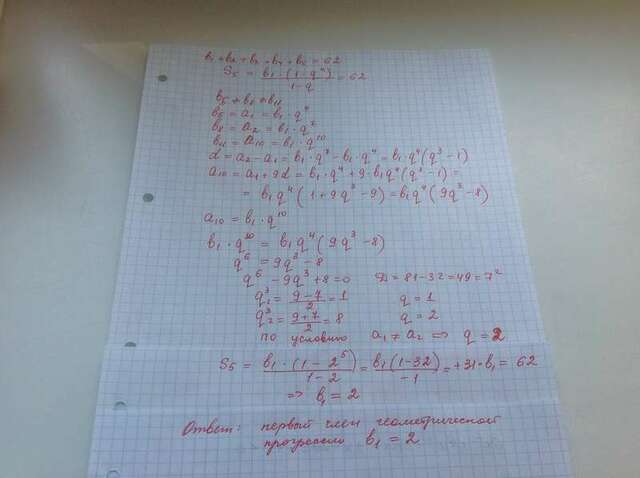 b₁ + b₂ + b₃ + b₄ + b₅ = 62
S₅ = b₁ · (1 - qⁿ) / 1 - q = 62
b₅ + b₈ + b₁₁
b₅ = a₁ = b₁ · q⁴
b₈ = a₂ = b₁ · q⁷
b₁₁ = a₁₀ = b₁ · q¹⁰
d = a₂ - a₁ = b₁ · q⁷ - b₁ · q⁴ = b₁ · q⁴ (q³ - 1)
a₁₀ = a₁ + 9d = b₁ · q⁴ + 9 · b₁q⁴ (q³ - 1) =
= b₁q⁴ (1 + 9q³ - 9) = b₁q⁴ (9q³ - 8)
a₁₀ = b₁ · q¹⁰
b₁ · q¹⁰ = b₁q⁴ (9q³ - 8)
q⁶ = 9q³ - 8
q⁶ - 9q³ + 8 = 0 D = 81 - 32 = 49 = 7²
q³₁ = 9 - 7 / 2 = 1 q = 1
q³₂ = 9 + 7 / 2 = 8 q = 2
по условию a₁ ≠ a₂ ⇒ q = 2
S₅ = b₁ · (1 - 2⁵) / 1 - 2 = b₁ (1 - 32) / -1 = +31 · b₁ = 62
⇒ b₁ = 2
Ответ: первый член геометрической
прогрессии b₁ = 2